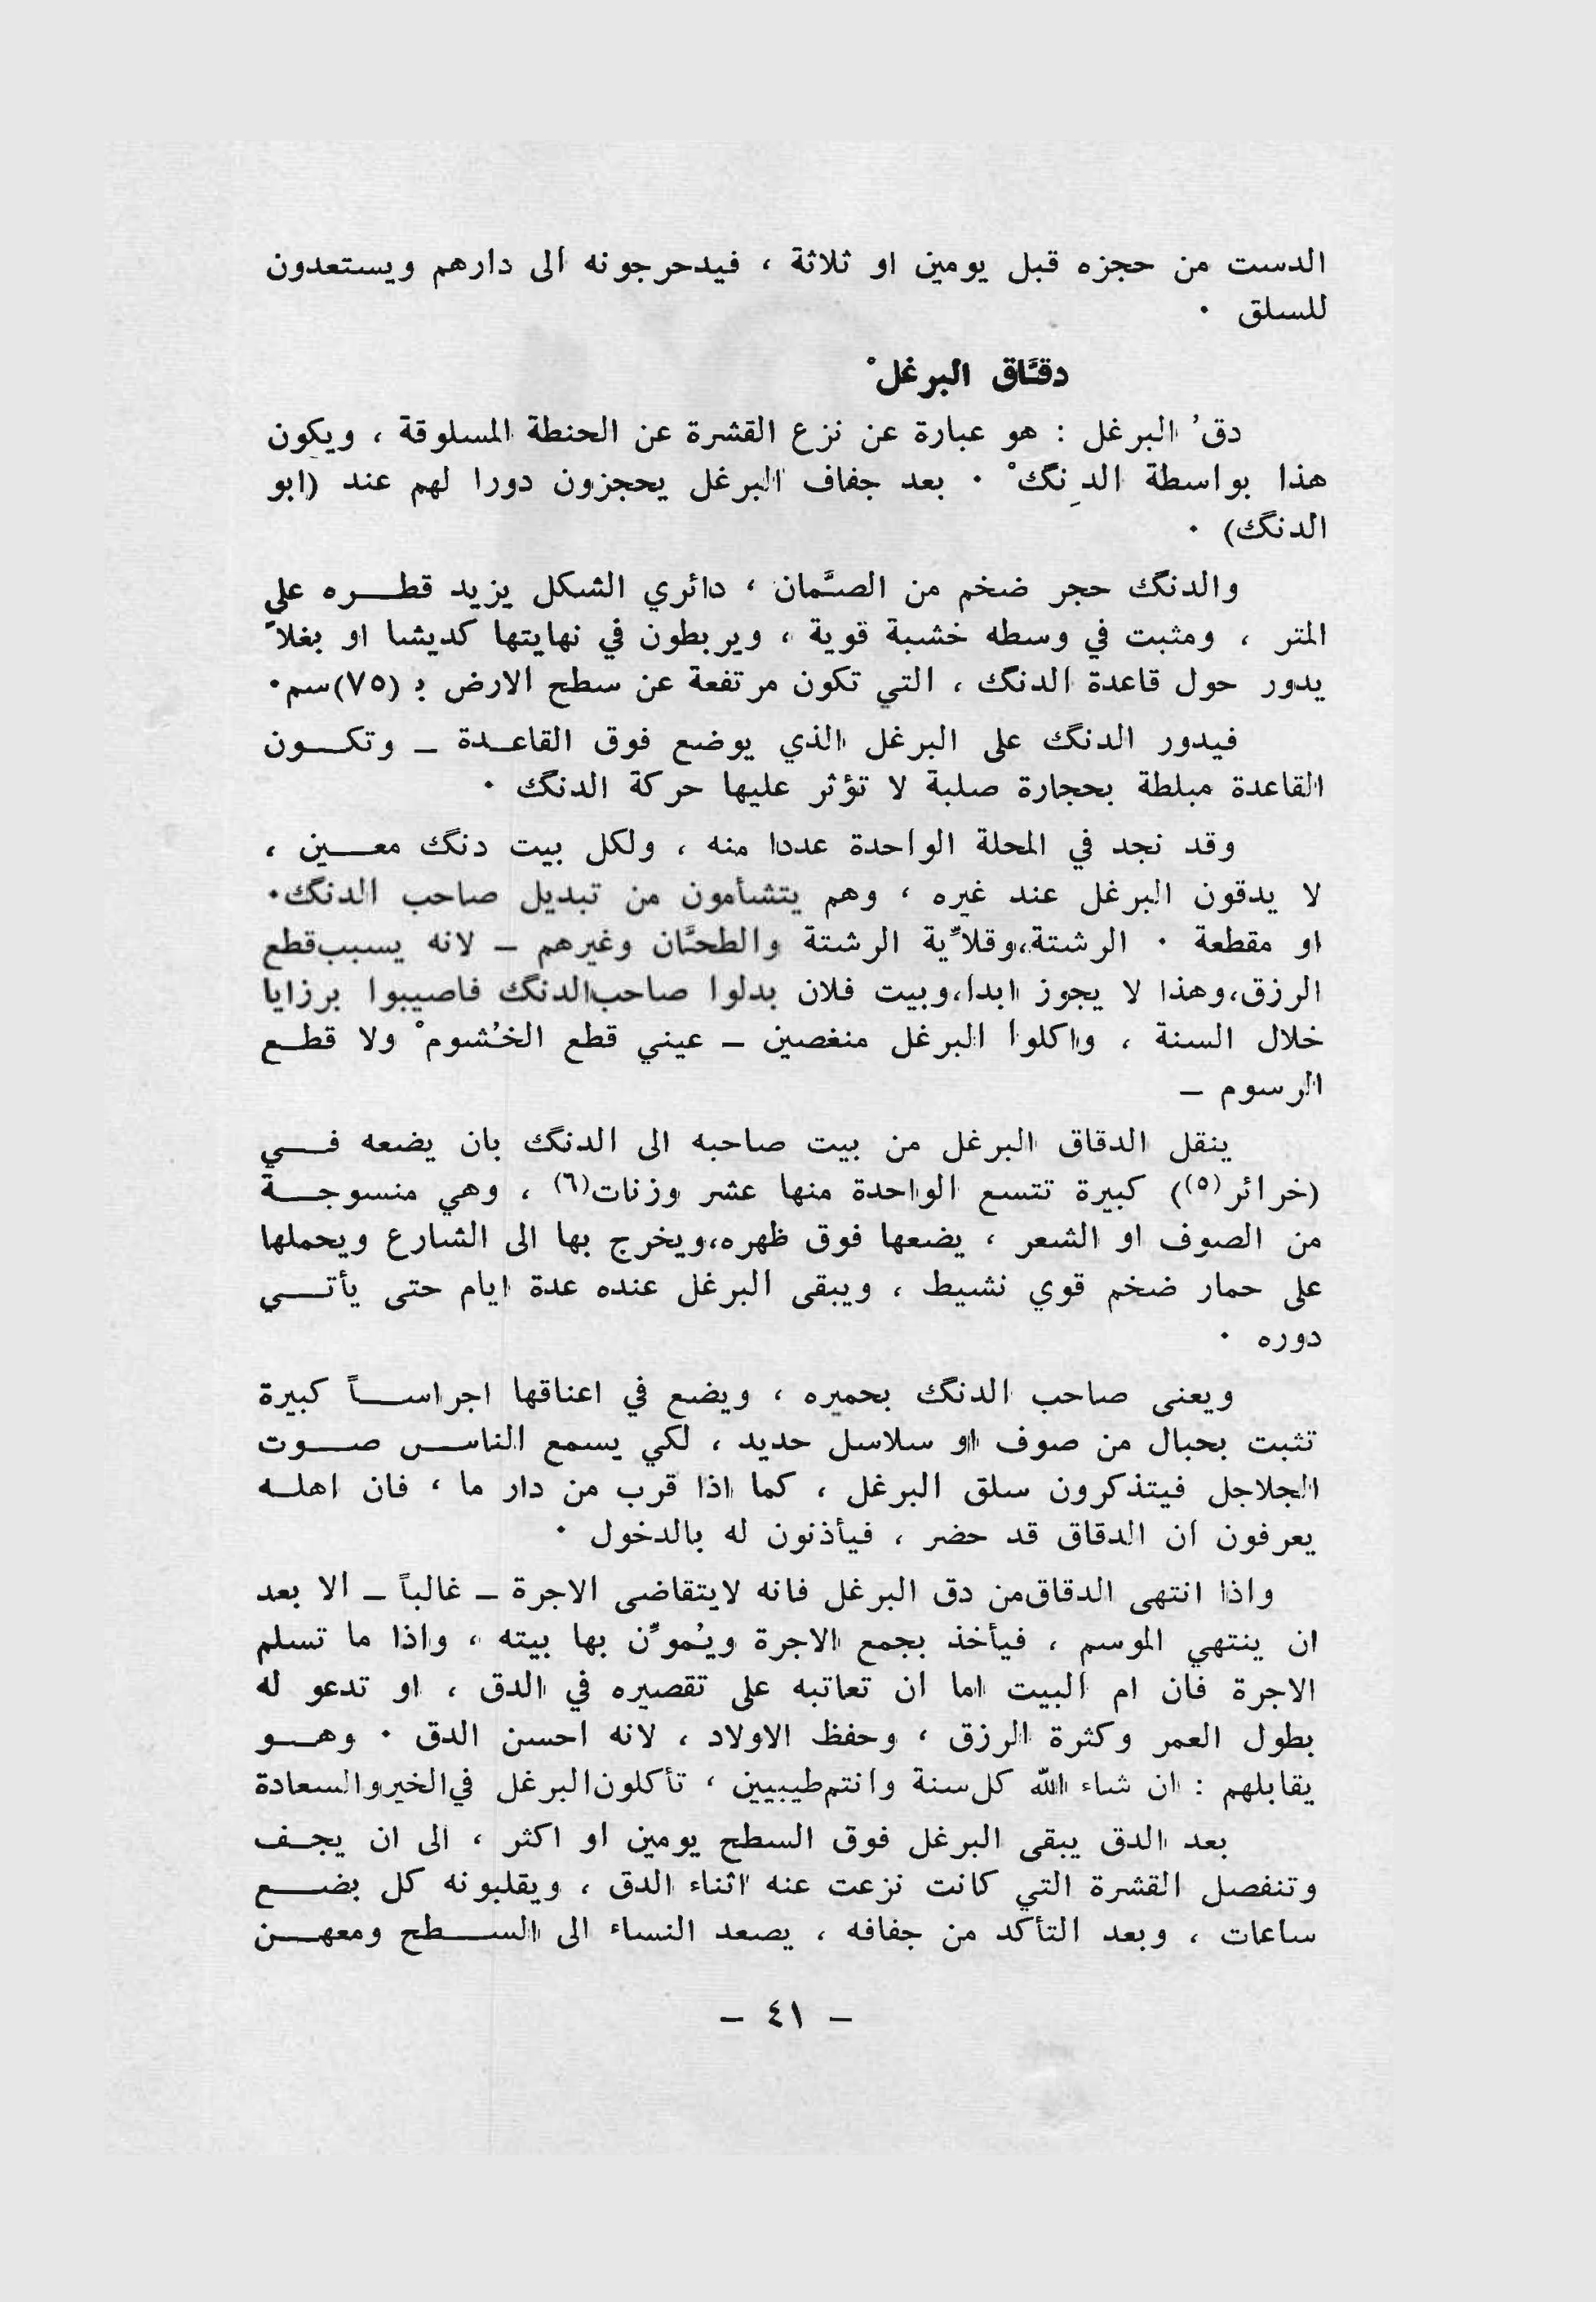 الدست من حجزه قبل يومين او ثلاثة ، فيدحرجونه الى دارهم ويستعدون
للسلق ٠
دقَّاق البرغلْ
دقُ البرغل : هو عبارة عن نزع القشرة عن الحنطة المسلوقة ، ويكون
هذا بواسطة الدِنگْ ٠ بعد جفاف البرغل يحجزون دورا لهم عند (ابو
الدنگ) ٠
والدنگ حجر ضخم من الصَّمان ، دائري الشكل يزيد قطره على
المتر ، ومثبت في وسطه خشبة قوية ، ويربطون في نهايتها كديشا او بغلاً
يدور حول قاعدة الدنگ ، التي تكون مرتفعة عن سطح الارض بـ (٧٥)سم٠
فيدور الدنگ على البرغل الذي يوضع فوق القاعدة ـ وتكون
القاعدة مبلطة بحجارة صلبة لا تؤثر عليها حركة الدنگ ٠
وقد نجد في المحلة الواحدة عددا منه ، ولكل بيت دنگ معين ،
لا يدقون البرغل عند غيره ، وهم يتشأمون من تبديل صاحب الدنگ٠
او مقطعة ٠ الرشتة،وقلاِّية الرشتة والطحَّان وغيرهم ـ لانه يسبب قطع
الرزق،وهذا لا يجوز ابدا،وبيت فلان بدلوا صاحب الدنگ فاصيبوا برزايا
خلال السنة ، واكلوا البرغل منغصين ـ عيني قطع الخُشومْ ولا قطع
الرسوم ـ
ينقل الدقاق البرغل من بيت صاحبه الى الدنگ بان يضعه في
(خرائر(٥)) كبيرة تتسع الواحدة منها عشر وزنات(٦) ، وهي منسوجة
من الصوف او الشعر ، يضعها فوق ظهره،ويخرج بها الى الشارع ويحملها
على حمار ضخم قوي نشيط ، ويبقى البرغل عنده عدة ايام حتى يأتي
دوره ٠
ويعنى صاحب الدنگ بحميره ، ويضع في اعناقها اجراساً كبيرة
تثبت بحبال من صوف او سلاسل حديد ، لكي يسمع الناس صوت
الجلاجل فيتذكرون سلق البرغل ، كما اذا قرب من دار ما ، فان اهله
يعرفون ان الدقاق قد حضر ، فيأذنون له بالدخول ٠
واذا انتهى الدقاق من دق البرغل فانه لايتقاضى الاجرة ـ غالباً ـ الا بعد
ان ينتهي الموسم ، فيأخذ بجمع الاجرة ويُموِّن بها بيته ، واذا ما تسلم
الاجرة فان ام البيت اما ان تعاتبه على تقصيره في الدق ، او تدعو له
بطول العمر وكثرة الرزق ، وحفظ الاولاد ، لانه احسن الدق ٠ وهو
يقابلهم : ان شاء الله كل سنة وانتم طيبيين ، تأكلون البرغل في الخير والسعادة
بعد الدق يبقى البرغل فوق السطح يومين او اكثر ، الى ان يجف
وتنفصل القشرة التي كانت نزعت عنه اثناء الدق ، ويقلبونه كل بضع
ساعات ، وبعد التأكد من جفافه ، يصعد النساء الى السطح ومعهن
ـ ٤١ ـ